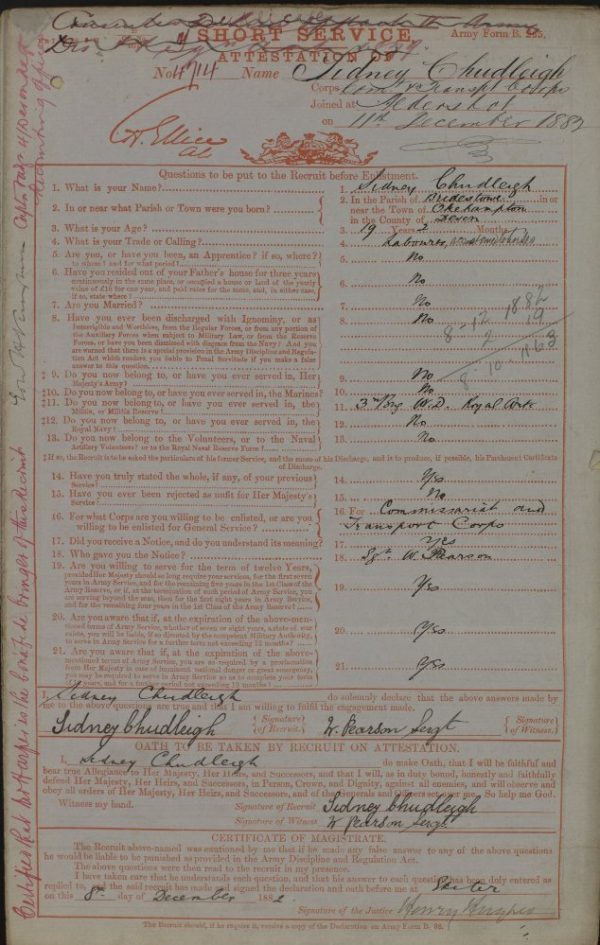 SHORT SERVICE
Army Form B. 265.
ATTESTATION OF
No 4714 Name Sidney Chudleigh
Corps Com & Transpt Corps
Joined at Aldershot
on 11th December 1882
Questions to be put to the Recruit before Enlistment.
1. What is your Name?
1. Sidney Chudleigh
2. In or near what Parish or Town were you born?
2. In the Parish of Bridestowe in or
near the Town of Okehampton
in the County of Devon
3. What is your Age?
3. 19 Years 2 Months
4. What is your Trade or Calling?
4. Labourer,
5. Are you, or have you been, an Apprentice? if so, where?
to whom? and for what period?
5. No
6. Have you resided out of your Father's house for three years
continuously in the same place, or occupied a house or land of the yearly
value of £10 for one year, and paid rates for the same, and, in either case,
if so, state where?
6. No
7. Are you Married?
7. No
8. Have you ever been discharged with Ignominy, or as
Incorrigible and Worthless, from the Regular Forces, or from any portion of
the Auxiliary Forces when subject to Military Law, or from the Reserve
Forces, or have you been dismissed with disgrace from the Navy? And you
are warned that there is a special provision in the Army Discipline and Regula-
tion Act which renders you liable to Penal Servitude if you make a false
answer to this question.
8. No
8 - 12 1882
2 19
8 - 10 - 1163
‡9. Do you now belong to, or have you ever served in, Her
Majesty's Army?
9. No
‡10. Do you now belong to, or have you ever served in, the Marines?
10. No
‡11. Do you now belong to, or have you ever served in, the
Militia, or Militia Reserve?
11. 3rd Brig. W.D. Royal Arty
‡12. Do you now belong to, or have you ever served in, the
Royal Navy?
12. No
13. Do you now belong to the Volunteers, or to the Naval
Artillery Volunteers? or to the Royal Naval Reserve Force?
13. No
‡If so, the Recruit is to be asked the particulars of his former Service, and the cause of his Discharge, and is to produce, if possible, his Parchment Certificate
of Discharge.
14. Have you truly stated the whole, if any, of your previous
Service?
14. Yes
15. Have you ever been rejected as unfit for Her Majesty's
Service?
15. No
16. For what Corps are you willing to be enlisted, or are you
willing to be enlisted for General Service?
16. For Commissariat and
Transport Corps
17. Did you receive a Notice, and do you understand its meaning?
17. Yes
18. Who gave you the Notice?
18. Sgt W. Pearson
19. Are you willing to serve for the term of twelve Years,
provided Her Majesty should so long require your services, for the first seven
years in Army Service, and for the remaining five years in the 1st Class of the
Army Reserve, or if, at the termination of such period of Army Service, you
are serving beyond the seas, then for the first eight years in Army Service,
and for the remaining four years in the 1st Class of the Army Reserve?
19. Yes
20. Are you aware that if, at the expiration of the above-men-
tioned terms of Army Service, whether of seven or eight years, a state of war
exists, you will be liable, if so directed by the competent Military Authority,
to serve in Army Service for a further term not exceeding 12 months?
20. Yes
21. Are you aware that if, at the expiration of the above-
mentioned terms of Army Service, you are so required by a proclamation
from Her Majesty in case of imminent national danger or great emergency,
you may be required to serve in Army Service so as to complete your term
of years, and for a further period not exceeding 12 months?
21. Yes
I, Sidney Chudleigh do solemnly declare that the above answers made by
me to the above questions are true and that I am willing to fulfil the engagement made.
Sidney Chudleigh {Signature of Recruit. W. Pearson Sergt {Signature of Witness.
OATH TO BE TAKEN BY RECRUIT ON ATTESTATION.
I, Sidney Chudleigh do make Oath, that I will be faithful and
bear true Allegiance to Her Majesty, Her Heirs, and Successors, and that I will, as in duty bound, honestly and faithfully
defend Her Majesty, Her Heirs, and Successors, in Person, Crown, and Dignity, against all enemies, and will observe and
obey all orders of Her Majesty, Her Heirs, and Successors, and of the Generals and Officers set over me. So help me God.
Witness my hand. Signature of Recruit Sidney Chudleigh
Signature of Witness W Pearson Sergt
CERTIFICATE OF MAGISTRATE.
The Recruit above-named was cautioned by me that if he made any false answer to any of the above questions
he would be liable to be punished as provided in the Army Discipline and Regulation Act.
The above questions were then read to the recruit in my presence.
I have taken care that he understands each question, and that his answer to each question has been duly entered as
replied to, and the said recruit has made and signed the declaration and oath before me at Exeter
on this 8th day of December 1882
Signature of the Justice Henry Hughes
The Recruit should, if he require it, receive a copy of the Declaration on Army Form B. 98.
Certified that Mr Harper is the bonâ fide bringer of this Recruit